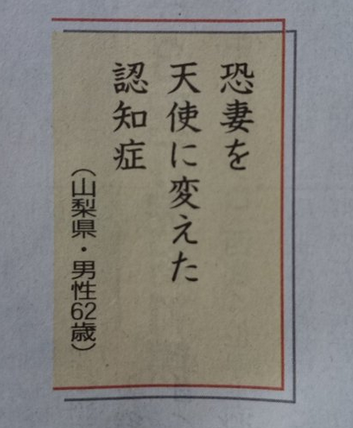 恐妻を
天使に変えた
認知症
（山梨県・男性62歳）